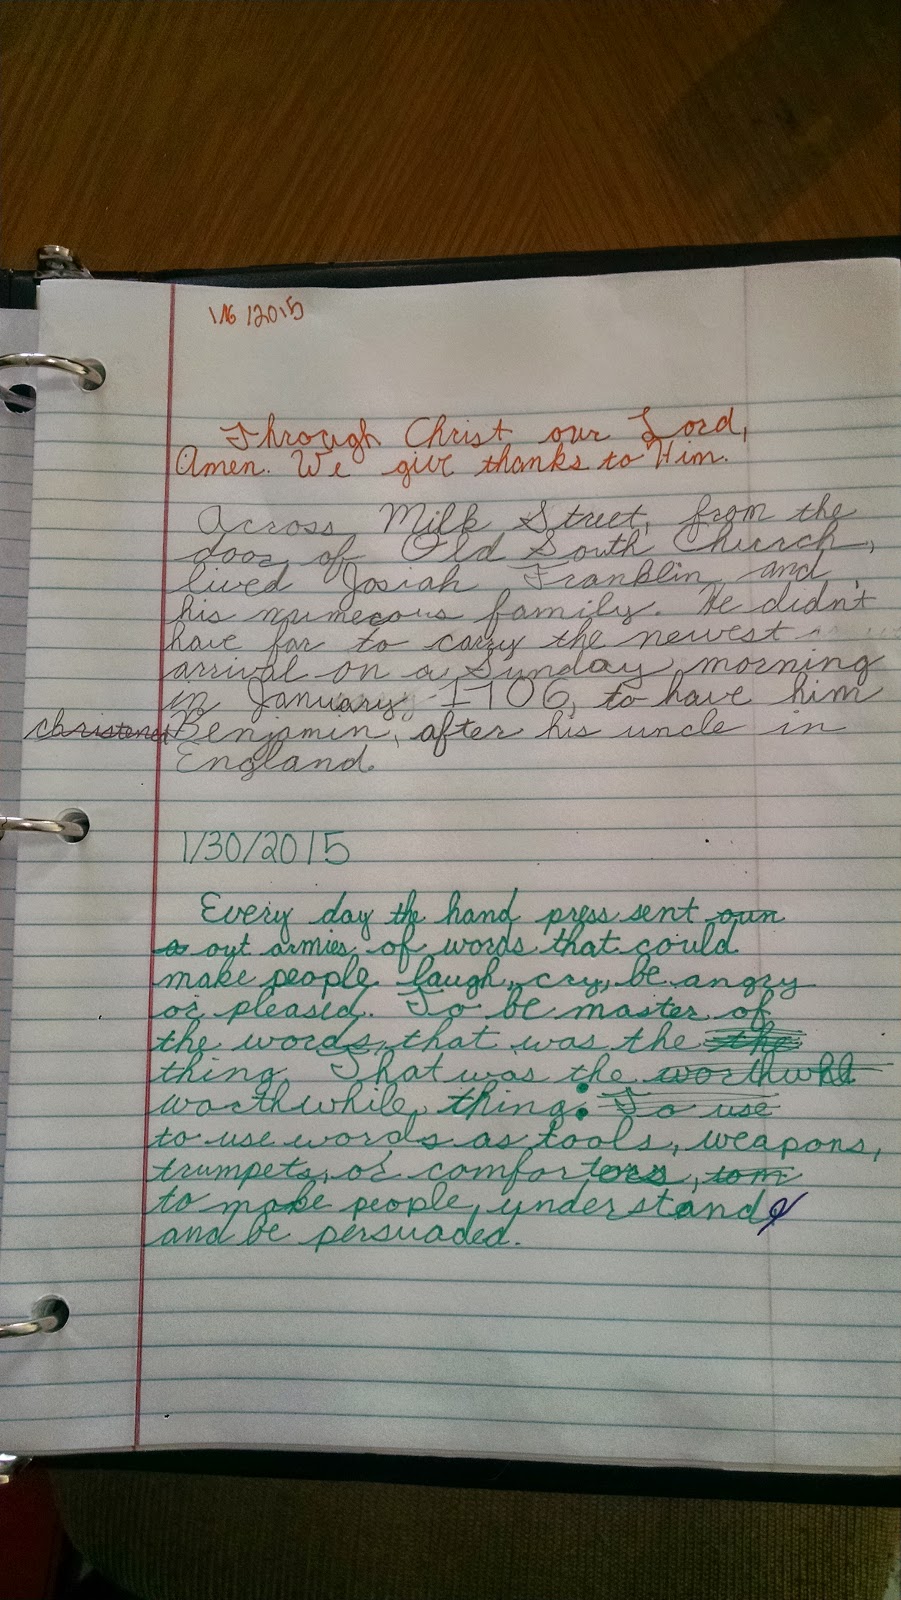 1/16/2015
Through Christ our Lord,
Amen. We give thanks to Him.
Across Milk Street, from the
door of Old South Church,
lived Josiah Franklin and
his numerous family. He didn't
have far to carry the newest
arrival on a Sunday morning
in January 1706, to have him
christened Benjamin, after his uncle in
England.
1/30/2015
Every day the hand press sent oun
a out armies of words that could
make people laugh, cry, be angry
or pleased. To be master of
the words, that was the the
thing. That was the worthwhl
worthwhile thing: To use
to use words as tools, weapons,
trumpets, or comforters, tom
to make people understand
and be persuaded.